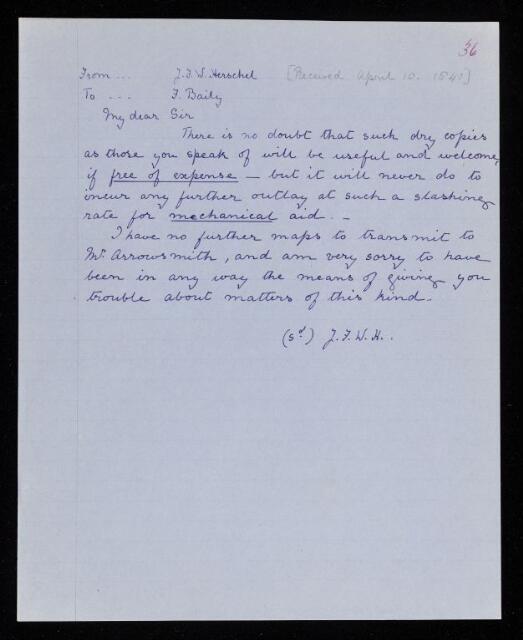 36
From... J.F.W. Herschel [Received April 10. 1840]
To --- F. Baily
My dear Sir
There is no doubt that such dry copies
as those you speak of will be useful and welcome,
if free of expense — but it will never do to
incur any further outlay at such a slashing
rate for mechanical aid. —
I have no further maps to transmit to
Mr. Arrowsmith, and am very sorry to have
been in any way the means of giving you
trouble about matters of this kind.
(sd) J.F.W.H..